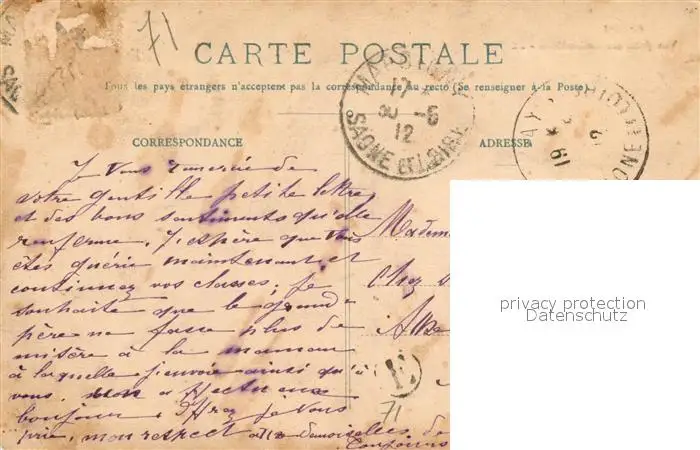 71
CARTE POSTALE
Tous les pays étrangers n'acceptent pas la correspondance au recto (Se renseigner à la Poste).
17
30 -5
12
SAONE ET LOIRE
CORRESPONDANCE
ADRESSE
Je vous remercie de
votre gentille petite lettre
et des bons sentiments qu'elle
renferme. J'espère que vous
êtes guérie maintenant et
continuez vos classes; je
souhaite que le grand
père ne fasse plus de
misère à la maman
à laquelle j'envoie ainsi qu'à
vous, mon affectueux
bonjour. je vous
prie, mon respect Demoiselles de
Mademo
Chez
E
71
privacy protection
Datenschutz